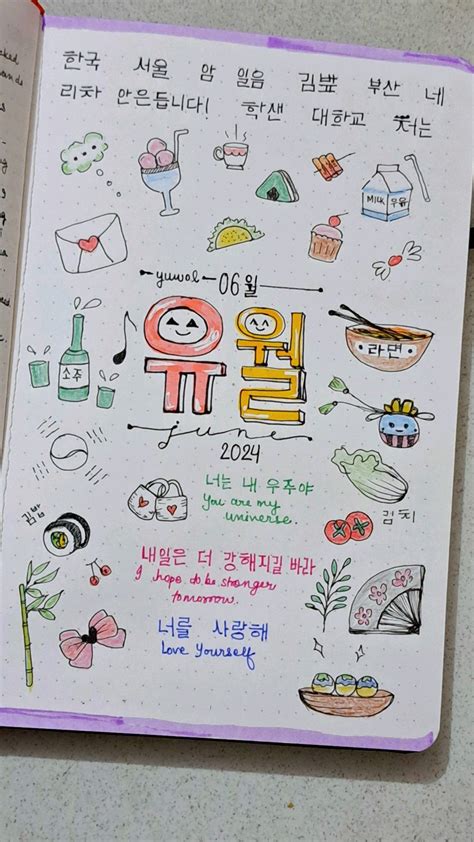 한국 서울 암 일음 김밮 부산 네
리차 안은듭니다! 학샌 대학교 저는
MILK 우유
yuwol 06월
유월
june
2024
소주
라면
너는 내 우주야
You are my
universe.
김밥
김치
내일은 더 강해지길 바라
I hope to be stronger
tomorrow.
너를 사랑해
Love Yourself